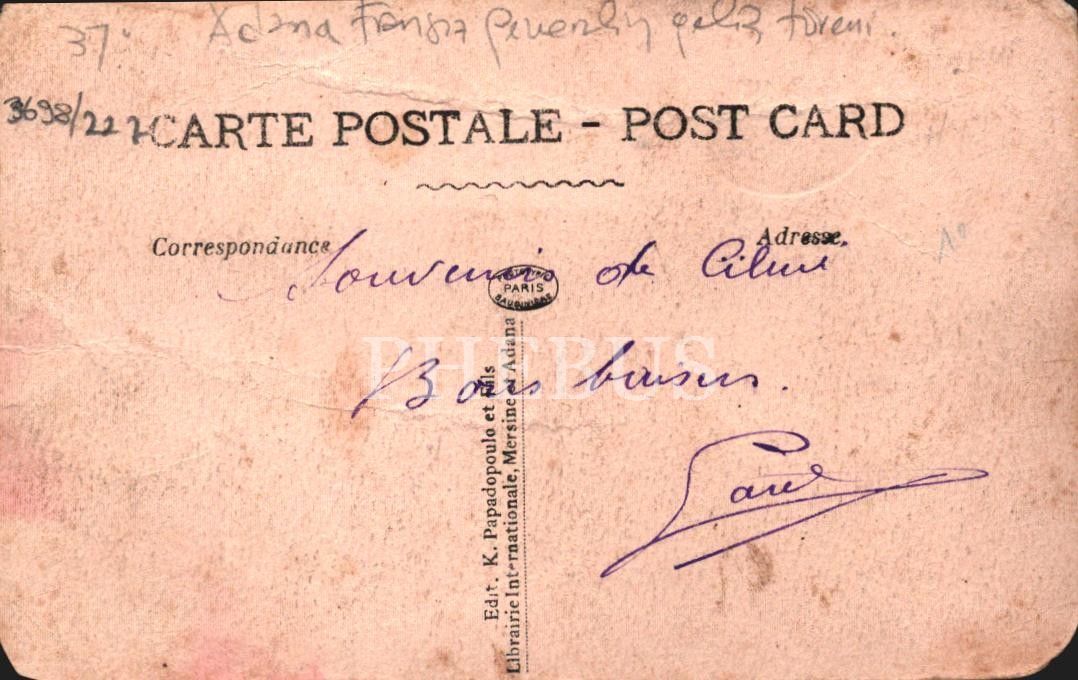 37
Adana Fransız geliş töreni.
3698/222
CARTE POSTALE - POST CARD
Correspondance
Adresse
Souvenir de
PARIS
Bons baisers.
PHEBUS
Edit. K. Papadopoulo et Fils
Librairie Internationale, Mersine et Adana